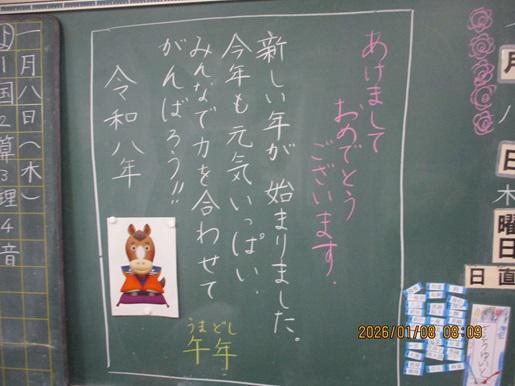 あけまして
おめでとう
ございます。
新しい年が始まりました。
今年も元気いっぱい、
みんなで力を合わせて
がんばろう!!
令和八年
うまどし
午年
月
八
日
木
曜日
日直
一月八日(木)
1国2算3理4音
2026/01/08 08:09